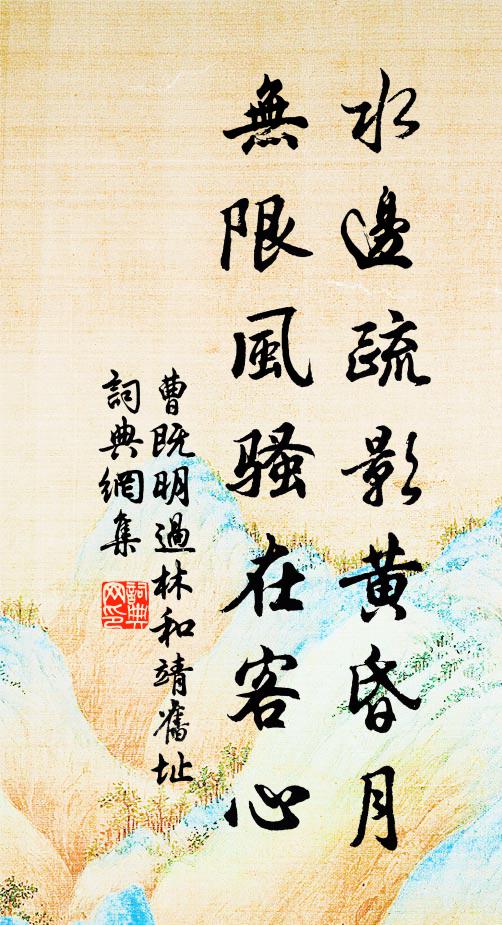 水邊疏影黄昏月
無限風騷在客心
曹既明過林和靖舊址
詞典網集
詞典
网印